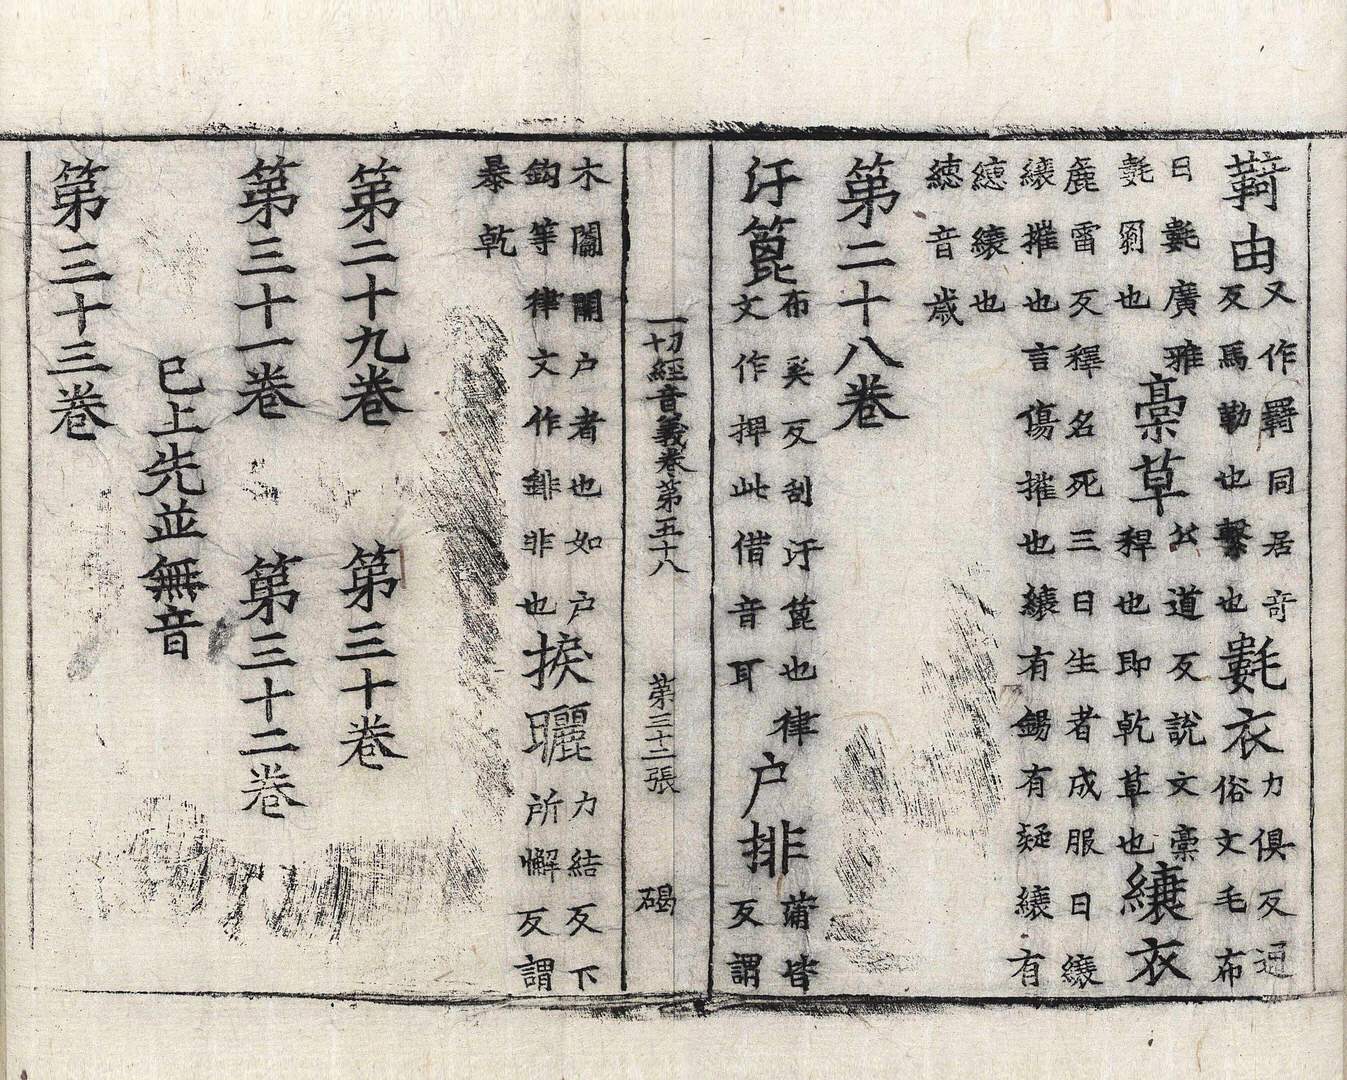 䩭由又作羇同居竒反馬勒也繫也氀衣力俱反通俗文毛布
日氀廣雅氀罽也稾草公道反說文稾稈也即乾草也縗衣
麁雷反釋名死三日生者成服日縗縗摧也言傷摧也縗有錫有疑縗有
繐縗也繐音歲
第二十八卷
汙箆布奚反刮汙箆也律文作捭此借音耳户排蒲皆反謂
一切經音義卷第五十八 第三十二張 碣
木闟關户者也如户鈎等律文作錍非也捩曬力結反下所懈反謂
暴乾
第二十九卷 第三十卷
第三十一卷 第三十二卷
已上先並無音
第三十三卷